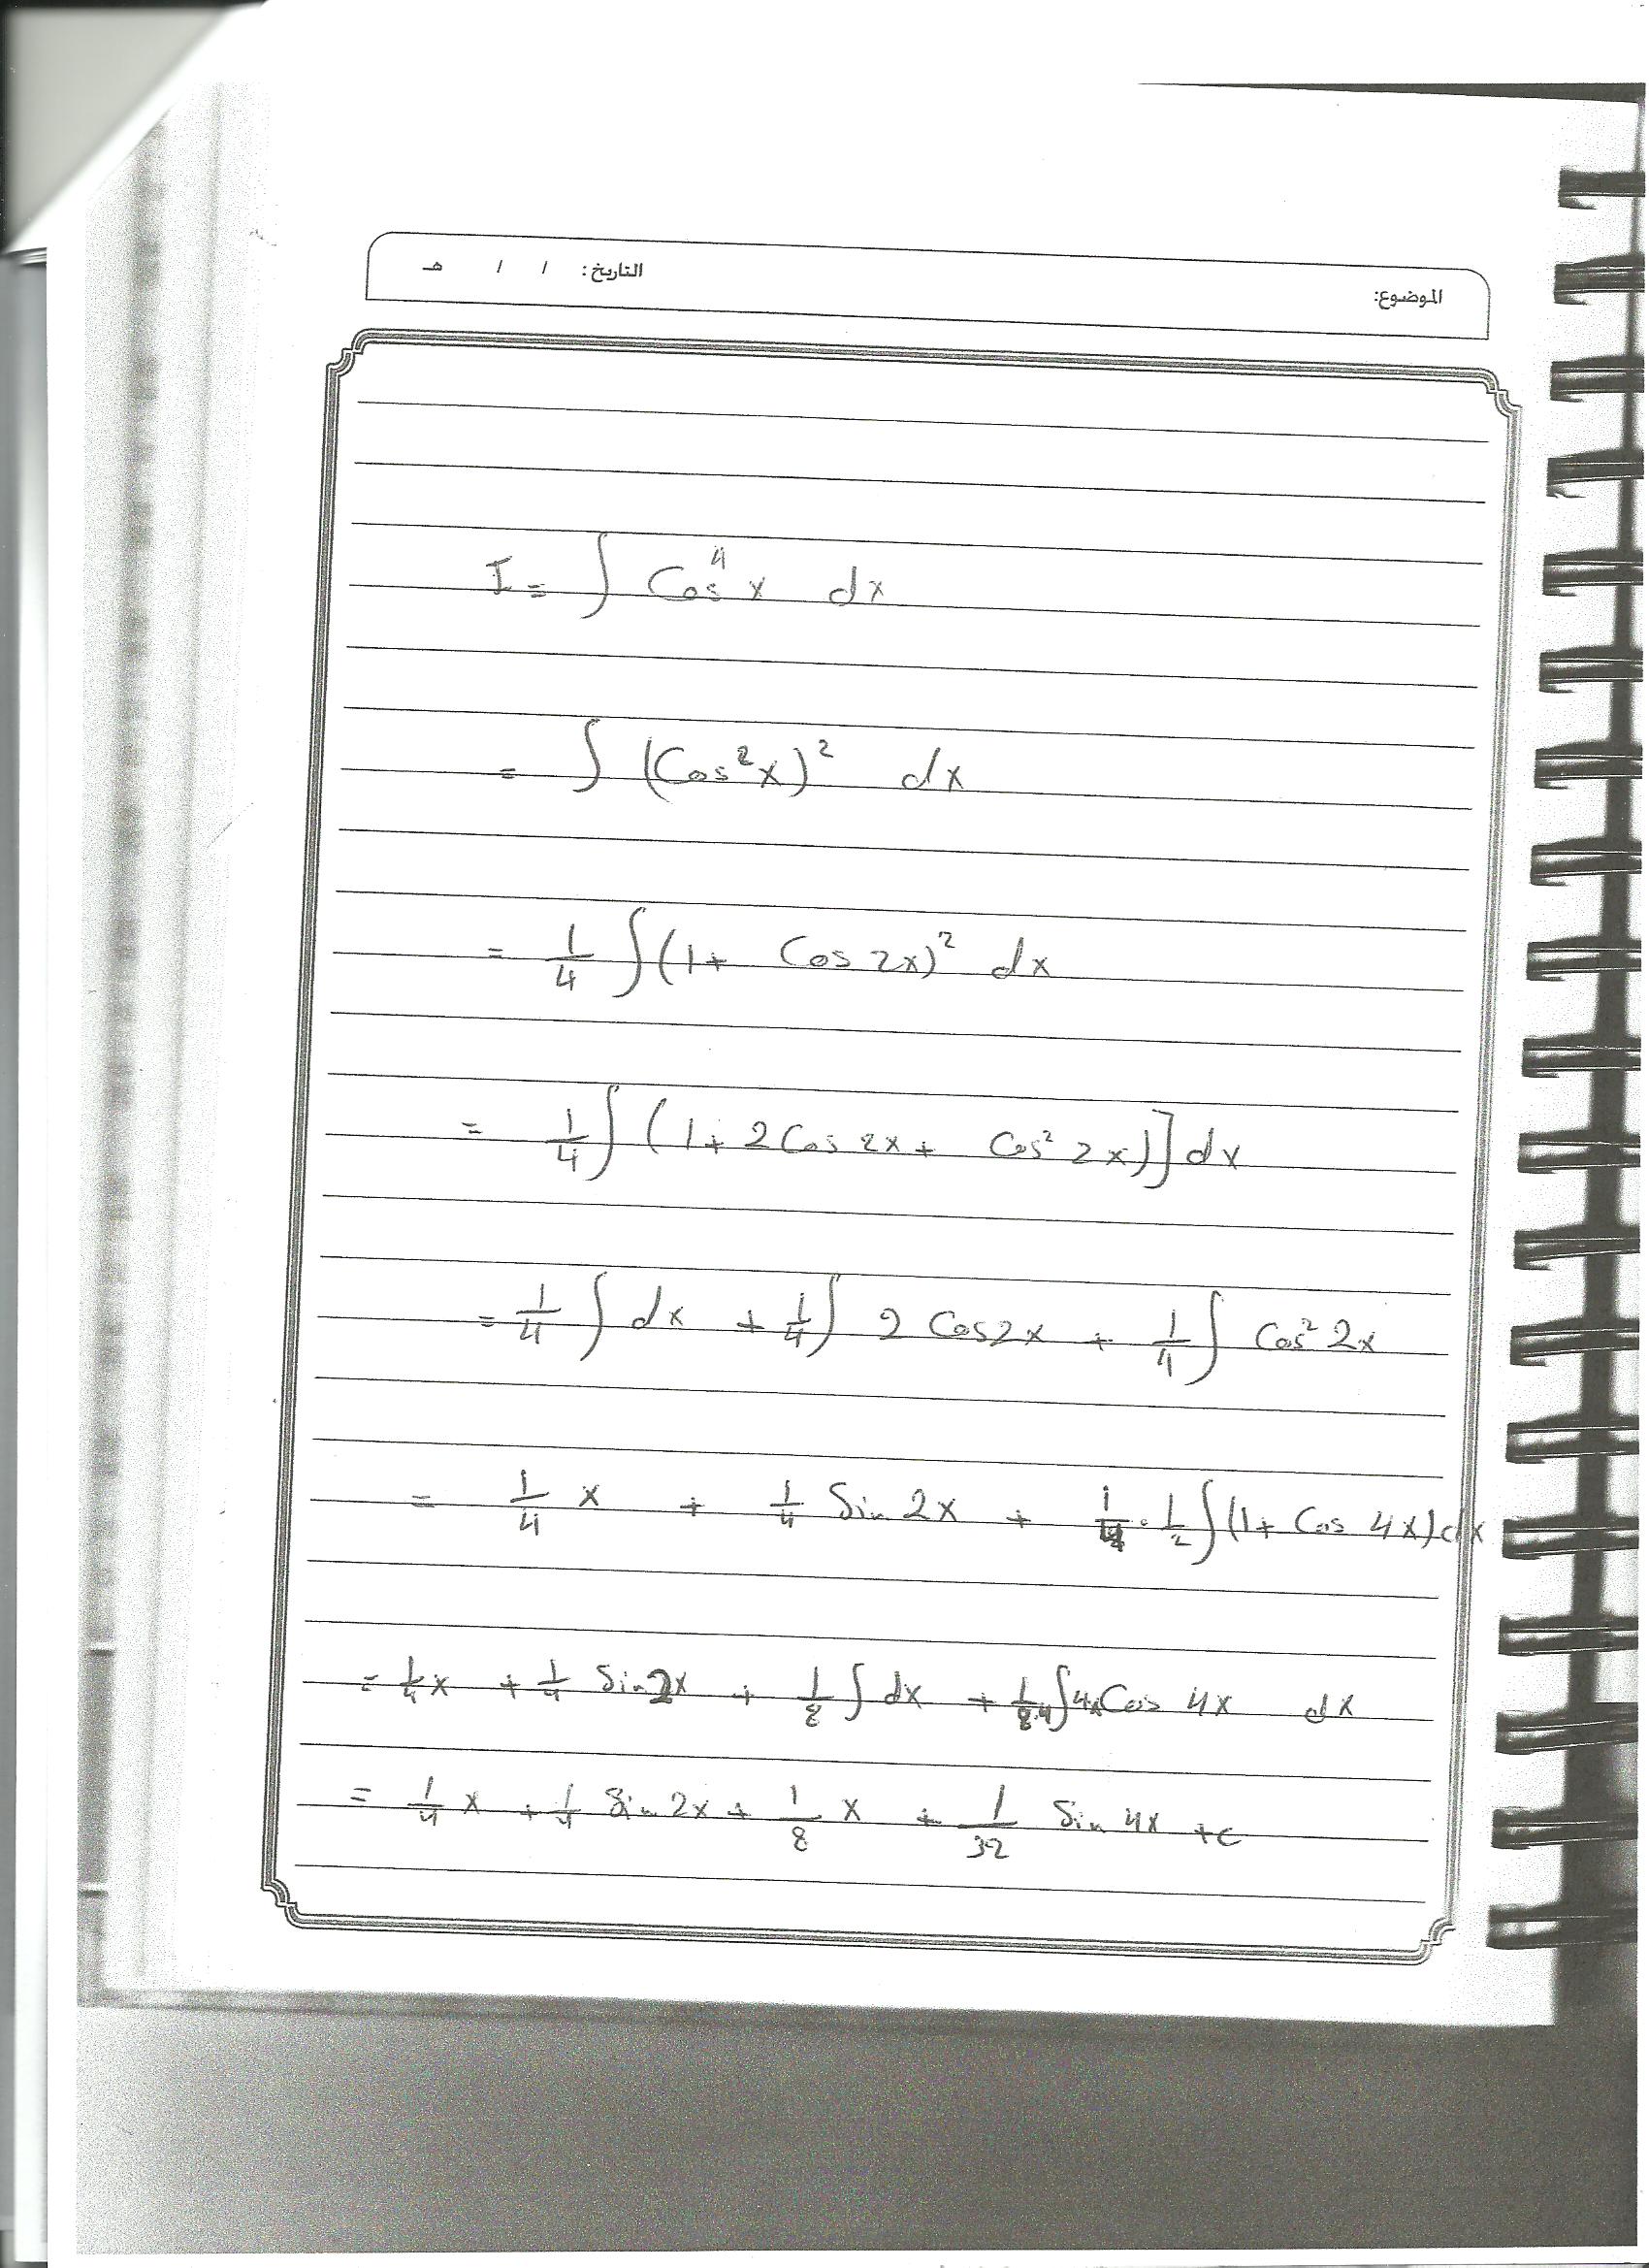 الموضوع:
التاريخ: / / هـ
I = ∫ Cos⁴ x dx
= ∫ (Cos² x)² dx
= 1/4 ∫ (1 + Cos 2x)² dx
= 1/4 ∫ (1 + 2 Cos 2x + Cos² 2x)] dx
= 1/4 ∫ dx + 1/4 ∫ 2 Cos 2x + 1/4 ∫ Cos² 2x
= 1/4 x + 1/4 Sin 2x + 1/4 · 1/2 ∫ (1 + Cos 4x) dx
= 1/4 x + 1/4 Sin 2x + 1/8 ∫ dx + 1/8·4 ∫ 4x Cos 4x dx
= 1/4 x + 1/4 Sin 2x + 1/8 x + 1/32 Sin 4x + c